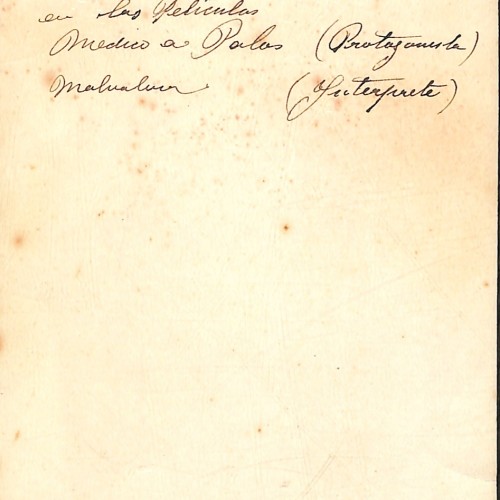 en las Peliculas
Medico a Palos (Protagonista)
Malvaloca (Interprete)